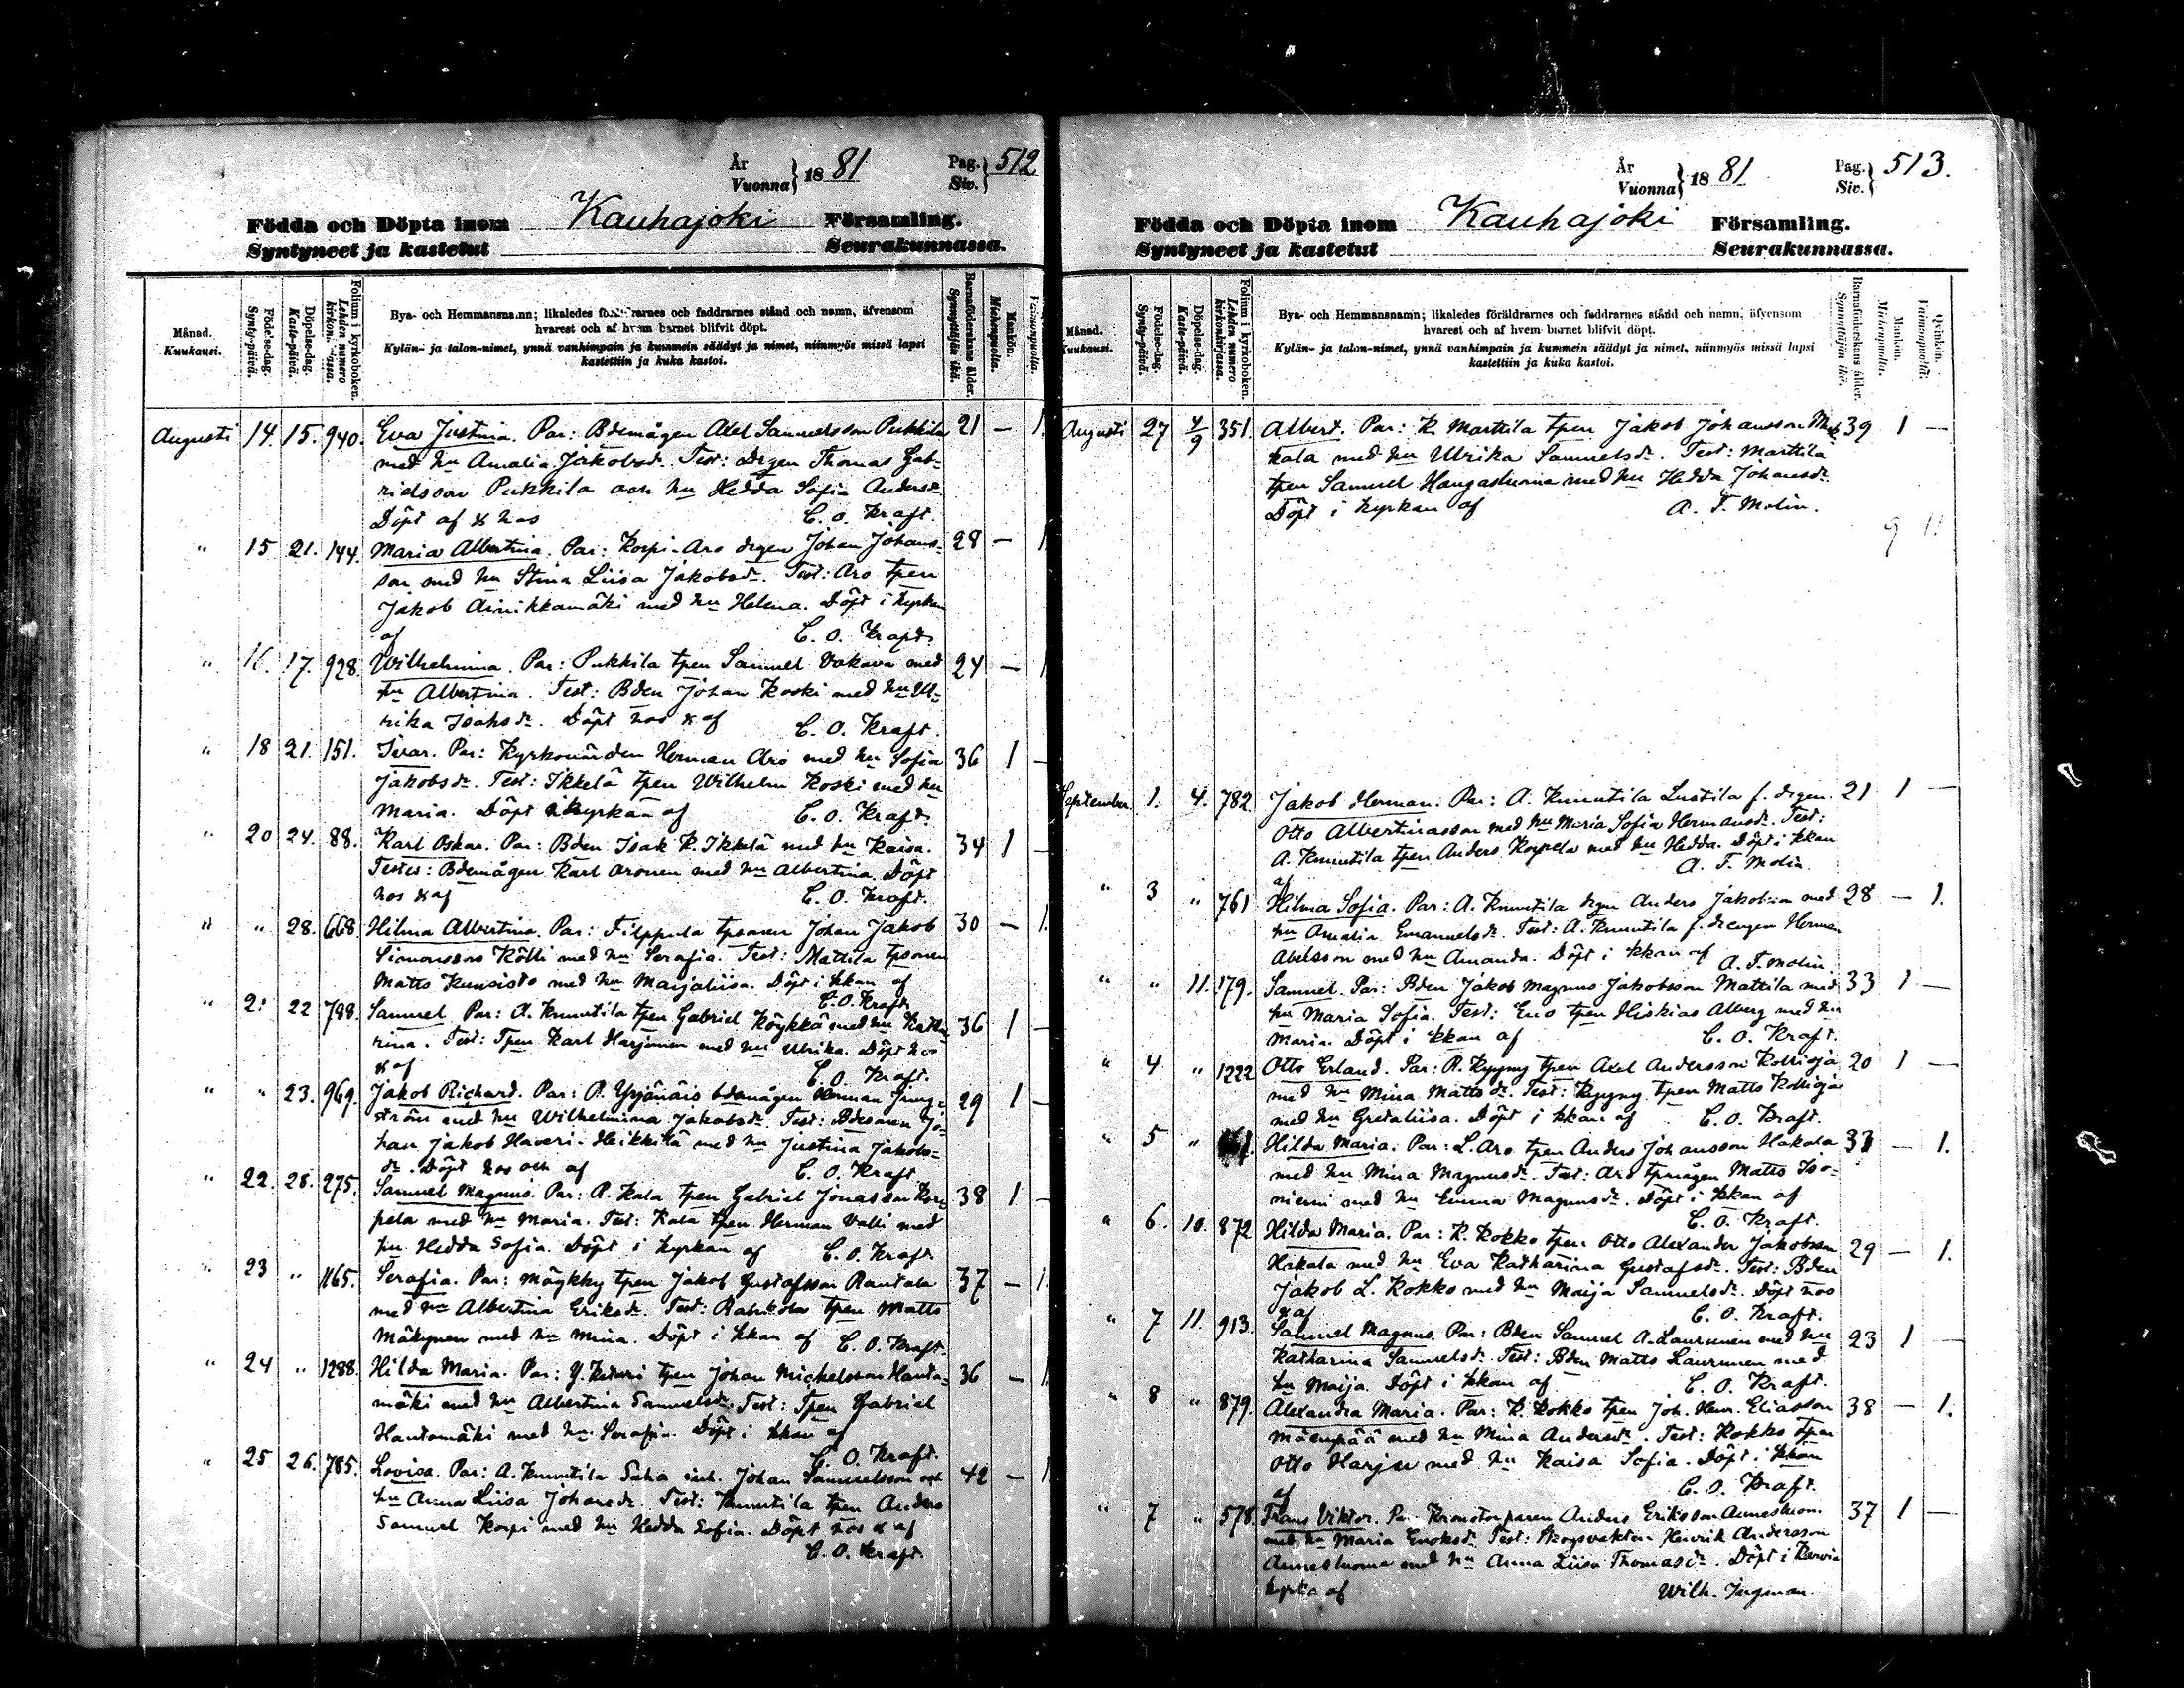 År
Vuonna } 1881
Pag.
Siv. } 512
Födda och Döpta inom Kauhajoki Församling.
Syntyneet ja kastetut Seurakunnassa.
Månad.
Kuukausi.
Födelse-dag.
Synty-päivä.
Döpelse-dag.
Kaste-päivä.
Folium i kyrkoboken.
Lehden numero
Bya- och Hemmansnamn; likaledes föräldrarnes och faddrarnes stånd och namn, äfvensom
hvarest och af hvem barnet blifvit döpt.
Kylän- ja talon-nimet, ynnä vanhimpain ja kummein säädyt ja nimet, niinmyös missä lapsi
kastettiin ja kuka kastoi.
Barnaföderskans ålder.
Synnyttäjän ikä.
Mankön.
Miehenpuolia.
Augusti 14. 15. 940. Eva Justina. Par: Bdemågen Axel Samuelsson Pukkila 21 — 1.
med hu Amalia Jakobsdr. Test: Drgen Thomas Gab-
rielsson Pukkila och hu Hedda Sofia Andersdr.
Döpt af & hos C. O. Kraft.
" 15 21. 144. Maria Albertina. Par: Korpi-Aro drgen Johan Johans- 28 — 1
son med hu Stina Liisa Jakobsdr. Test: Aro tpen
Jakob Ainikkamäki med hu Helena. Döpt i kyrkan
af C. O. Kraft.
" 16. 17. 928. Wilhelmina. Par: Pukkila tpen Samuel Vakava med 24 — 1
hu Albertina. Test: Bden Johan Koski med hu Ul-
rika Isaksdr. Döpt hos & af C. O. Kraft.
" 18 21. 151. Ivar. Par: Kyrkovärden Herman Aro med hu Sofia 36 1 —
Jakobsdr. Test: Ikkelä tpen Wilhelm Koski med hu
Maria. Döpt i kyrkan af C. O. Kraft.
" 20 24. 88. Karl Oskar. Par: Bden Isak K. Ikkelä med hu Kaisa. 34 1 —
Testes: Bdemågen Karl Aronen med hu Albertina. Döpt
hos & af C. O. Kraft.
" " 28. 668. Hilma Albertina. Par: Filppula tpsonen Johan Jakob 30 — 1.
Simonsson Kölli med hu Serafia. Test: Mattila tpsonen
Matts Kunsisto med hu Maijaliisa. Döpt i kkan af
C. O. Kraft
" 21 22 788. Samuel. Par: A. Knuutila tpen Gabriel Köykkä med hu Katha- 36 1 —
rina. Test: Tpen Karl Harjunen med hu Ulrika. Döpt hos
& af C. O. Kraft.
" " 23. 969. Jakob Richard. Par: P. Yrjänäis bdemågen Herman Jung- 29 1 —
ström med hu Wilhelmina Jakobsdr. Test: Bdesonen Jo-
han Jakob Haveri-Heikkilä med hu Justina Jakobs-
dr. Döpt hos och af C. O. Kraft
" 22. 28. 275. Samuel Magnus. Par: P. Kala tpen Gabriel Jonasson Kor- 38 1 —
pela med hu Maria. Test: Kala tpen Herman Valli med
hu Hedda Sofia. Döpt i kyrkan af C. O. Kraft
" 23 " 1165. Serafia. Par: Mäykky tpen Jakob Gustafsson Rantala 37 — 1
med hu Albertina Eriksdr. Test: tpen Matts
Mäkynen med hu Mina. Döpt i kkan af C. O. Kraft.
" 24 " 1288. Hilda Maria. Par: Y. Keturi tpen Johan Mickelsson Hauta- 36 — 1
mäki med hu Albertina Samuelsdr. Test: Tpen Gabriel
Hautamäki med hu Serafia. Döpt i kkan af
C. O. Kraft.
" 25 26. 785. Lovisa. Par: A. Knuutila Saha inh. Johan Samuelsson och 42 — 1
hu Anna Liisa Johansdr. Test: Knuutila tpen Anders
Samuel Korpi med hu Hedda Sofia. Döpt hos & af
C. O. Kraft.
År
Vuonna } 1881
Pag.
Siv. } 513.
Födda och Döpta inom Kauhajoki Församling.
Syntyneet ja kastetut Seurakunnassa.
Månad.
Kuukausi.
Födelse-dag.
Synty-päivä.
Döpelse-dag.
Kaste-päivä.
Folium i kyrkoboken.
Lehden numero
kirkonkirjassa.
Bya- och Hemmansnamn; likaledes föräldrarnes och faddrarnes stånd och namn, äfvensom
hvarest och af hvem barnet blifvit döpt.
Kylän- ja talon-nimet, ynnä vanhimpain ja kummein säädyt ja nimet, niinmyös missä lapsi
kastettiin ja kuka kastoi.
Barnaföderskans ålder.
Synnyttäjän ikä.
Mankön.
Miehenpuolia.
Qvinkön.
Vaimonpuolia.
Augusti 27 4/9 351. Albert. Par: K. Marttila tpen Jakob Johansson 39 1 —
kala med hu Ulrika Samuelsdr. Test: Marttila
tpen Samuel Hangasluoma med hu Hedda Johansdr.
Döpt i kyrkan af A. F. Molin.
9 11
September. 1. 4. 782. Jakob Herman. Par: A. Knuutila Lustila f. drgen 21 1 —
Otto Albertinasson med hu Maria Sofia Hermansdr. Test:
A. Knuutila tpen Anders Korpela med hu Hedda. Döpt i kkan
af A. F. Molin.
" 3 " 761 Hilma Sofia. Par: A. Knuutila drgen Anders Jakobsson med 28 — 1.
hu Amalia Emanuelsdr. Test: A. Knuutila f. drengen Herman
Abelsson med hu Amanda. Döpt i kkan af A. F. Molin.
" " 11. 179. Samuel. Par: Bden Jakob Magnus Jakobsson Mattila med 33 1 —
hu Maria Sofia. Test: Eno tpen Hiskias Alberg med hu
Maria. Döpt i kkan af C. O. Kraft.
" 4 " 1222 Otto Erland. Par: P. Kyyny tpen Axel Andersson Kottioja 20 1 —
med hu Mina Mattsdr. Test: Kyyny tpen Matts Kottioja
med hu Gretaliisa. Döpt i kkan af C. O. Kraft.
" 5 " Hilda Maria. Par: L. Aro tpen Anders Johansson Hakala 33 — 1.
med hu Mina Magnusdr. Test: Aro tpmågen Matts Iso-
niemi med hu Emma Magnusdr. Döpt i kkan af
C. O. Kraft.
" 6. 10. 872 Hilda Maria. Par: K. Kokko tpen Otto Alexander Jakobsson 29 — 1.
Hakala med hu Eva Katharina Gustafsdr. Test: Bden
Jakob L. Kokko med hu Maija Samuelsdr. Döpt hos
& af C. O. Kraft.
" 7 11. 913. Samuel Magnus. Par: Bden Samuel A. Laurunen med hu 23 1 —
Katharina Samuelsdr. Test: Bden Matts Laurunen med
hu Maija. Döpt i kkan af C. O. Kraft.
" 8 " 879. Alexandra Maria. Par: K. Kokko tpen Joh. Henr. Eliasson 38 — 1.
Mäenpää med hu Mina Andersdr. Test: Kokko tpen
Otto Harju med hu Kaisa Sofia. Döpt i kkan
af C. O. Kraft.
" 7 " 578. Frans Viktor. Par: Kronotorparen Anders Eriksson Annesluoma 37 1 —
med hu Maria Enoksdr. Test: Skogsvakten Henrik Andersson
Annesluoma med hu Anna Liisa Thomasdr. Döpt i Karvia
kyrka af Wilh. Ingman.